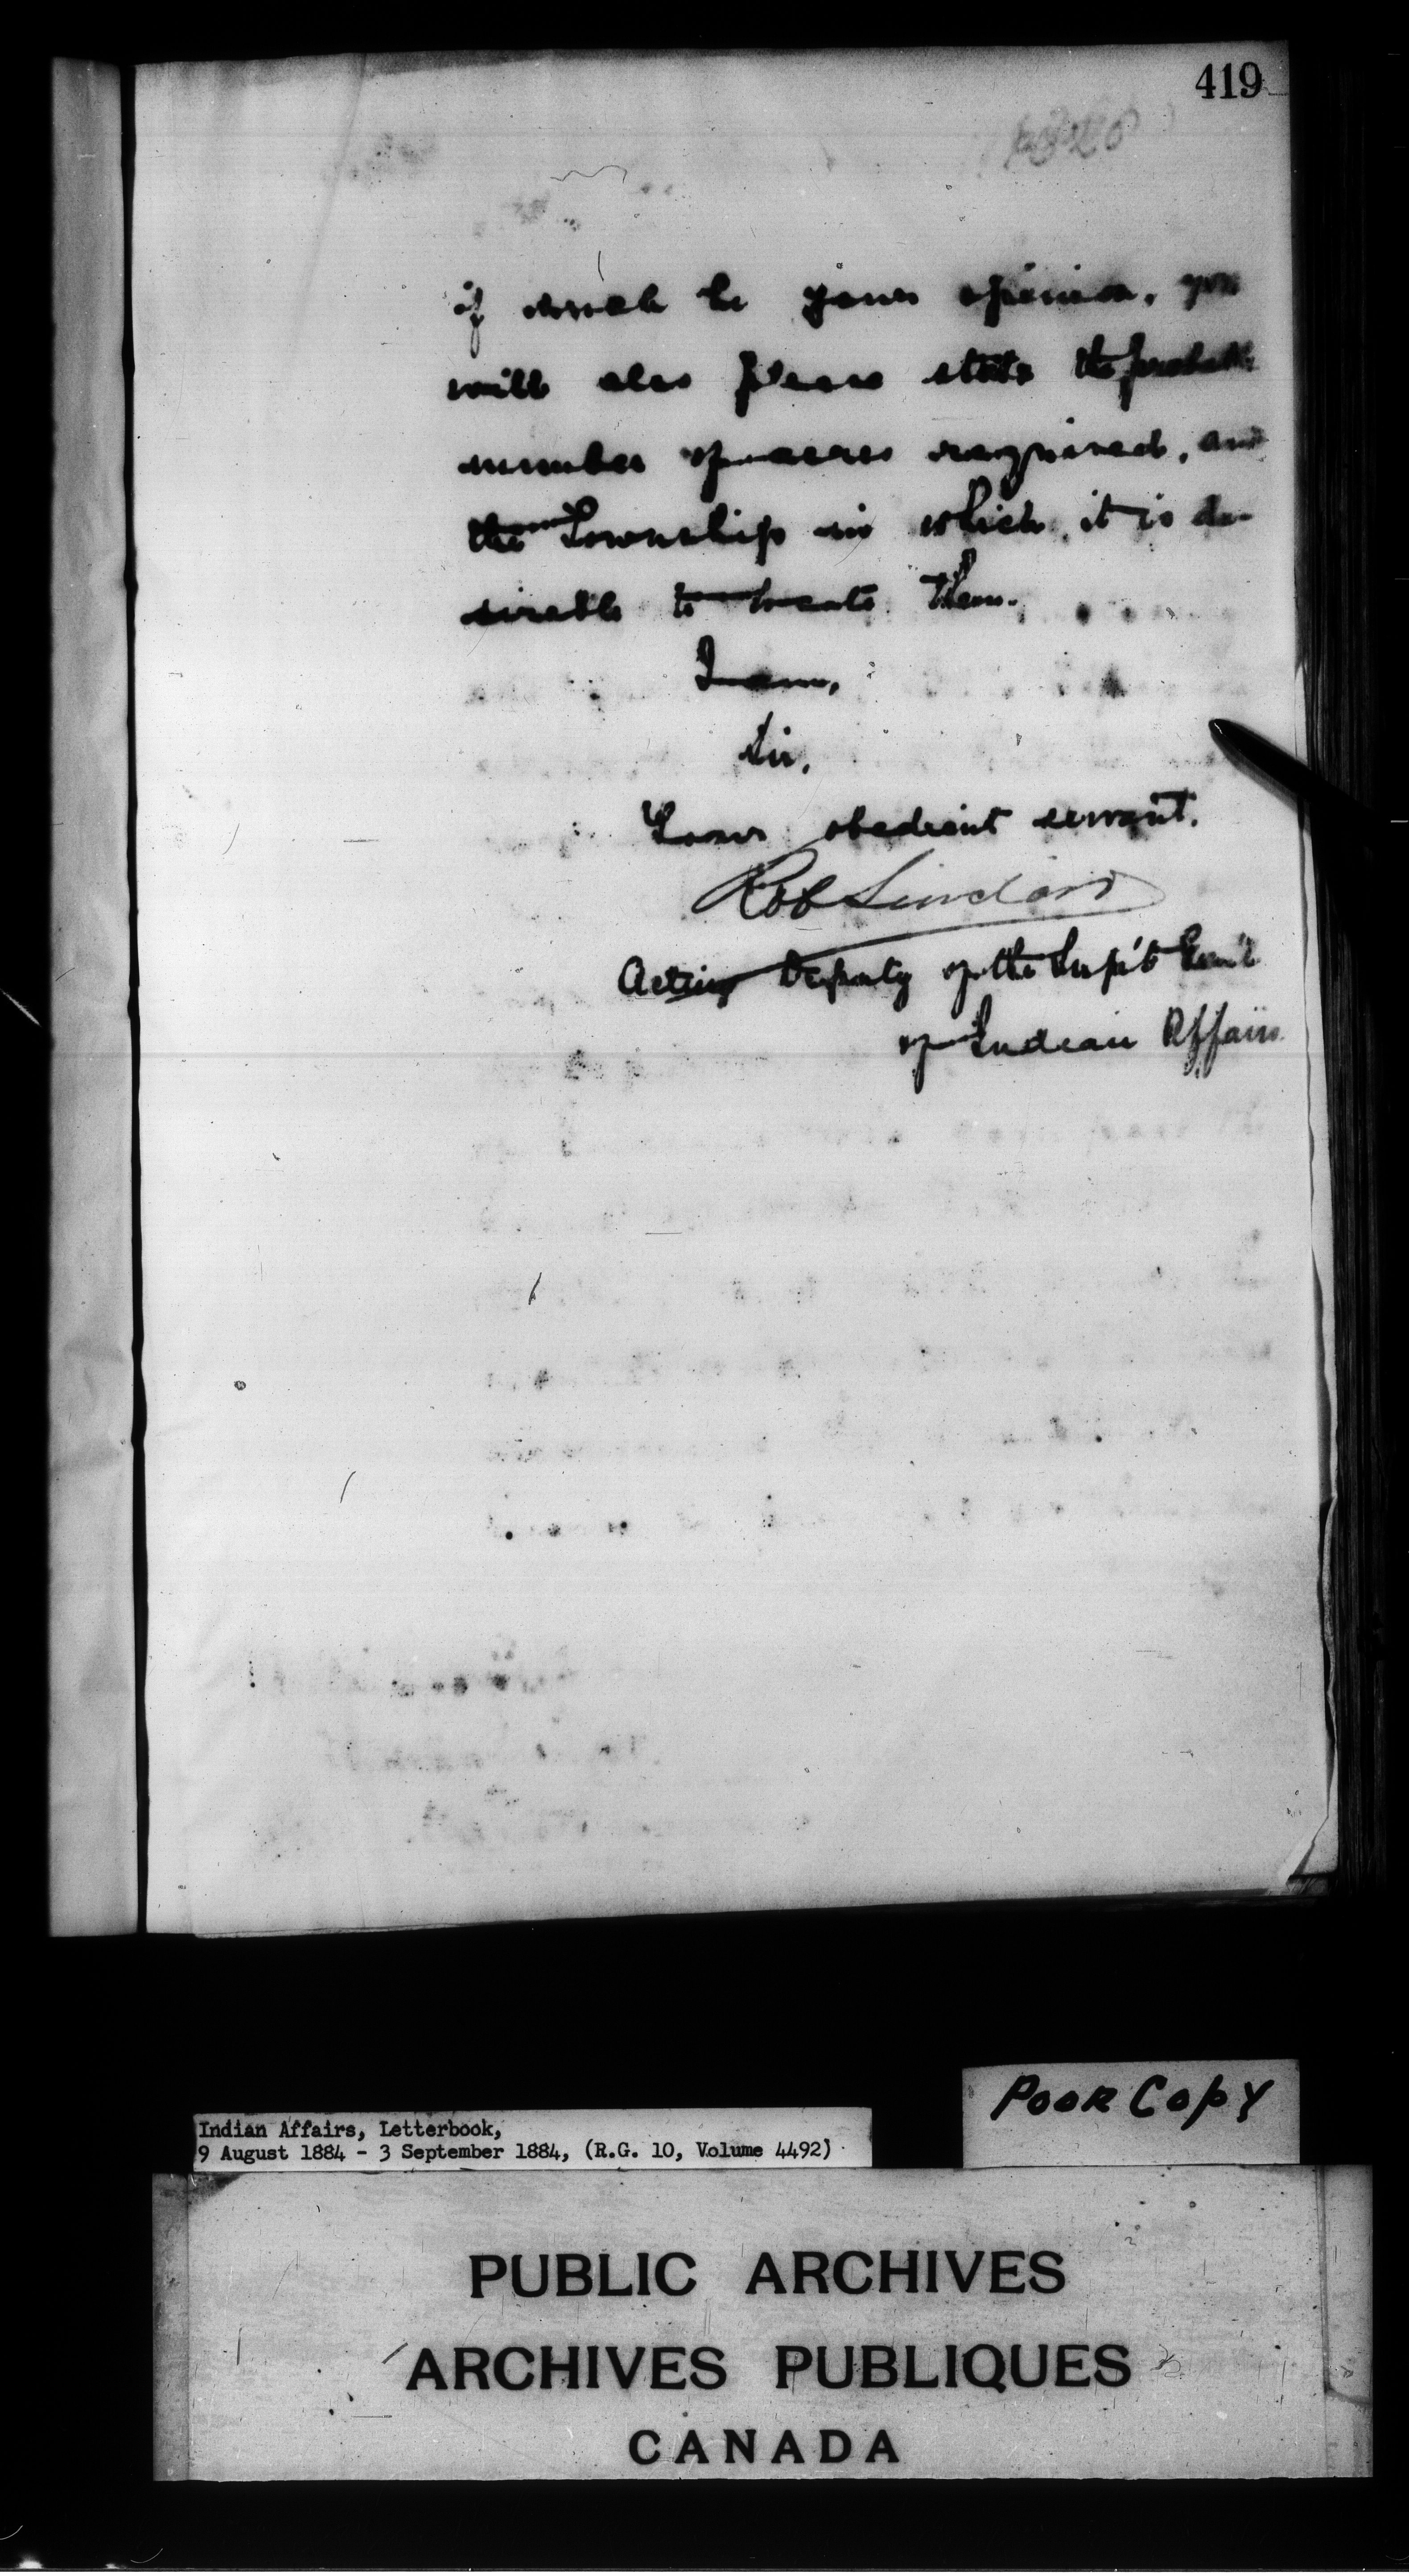 419
if such be your opinion, you
will also please state the probable
number of acres required, and
the Township in which it is de-
sirable to locate them.
I am,
Sir,
Your obedient servant.
Rob Sinclair
Acting Deputy of the Sup't Gen'l
of Indian Affairs
POOR COPY
Indian Affairs, Letterbook,
9 August 1884 - 3 September 1884, (R.G. 10, Volume 4492)
PUBLIC ARCHIVES
ARCHIVES PUBLIQUES
CANADA